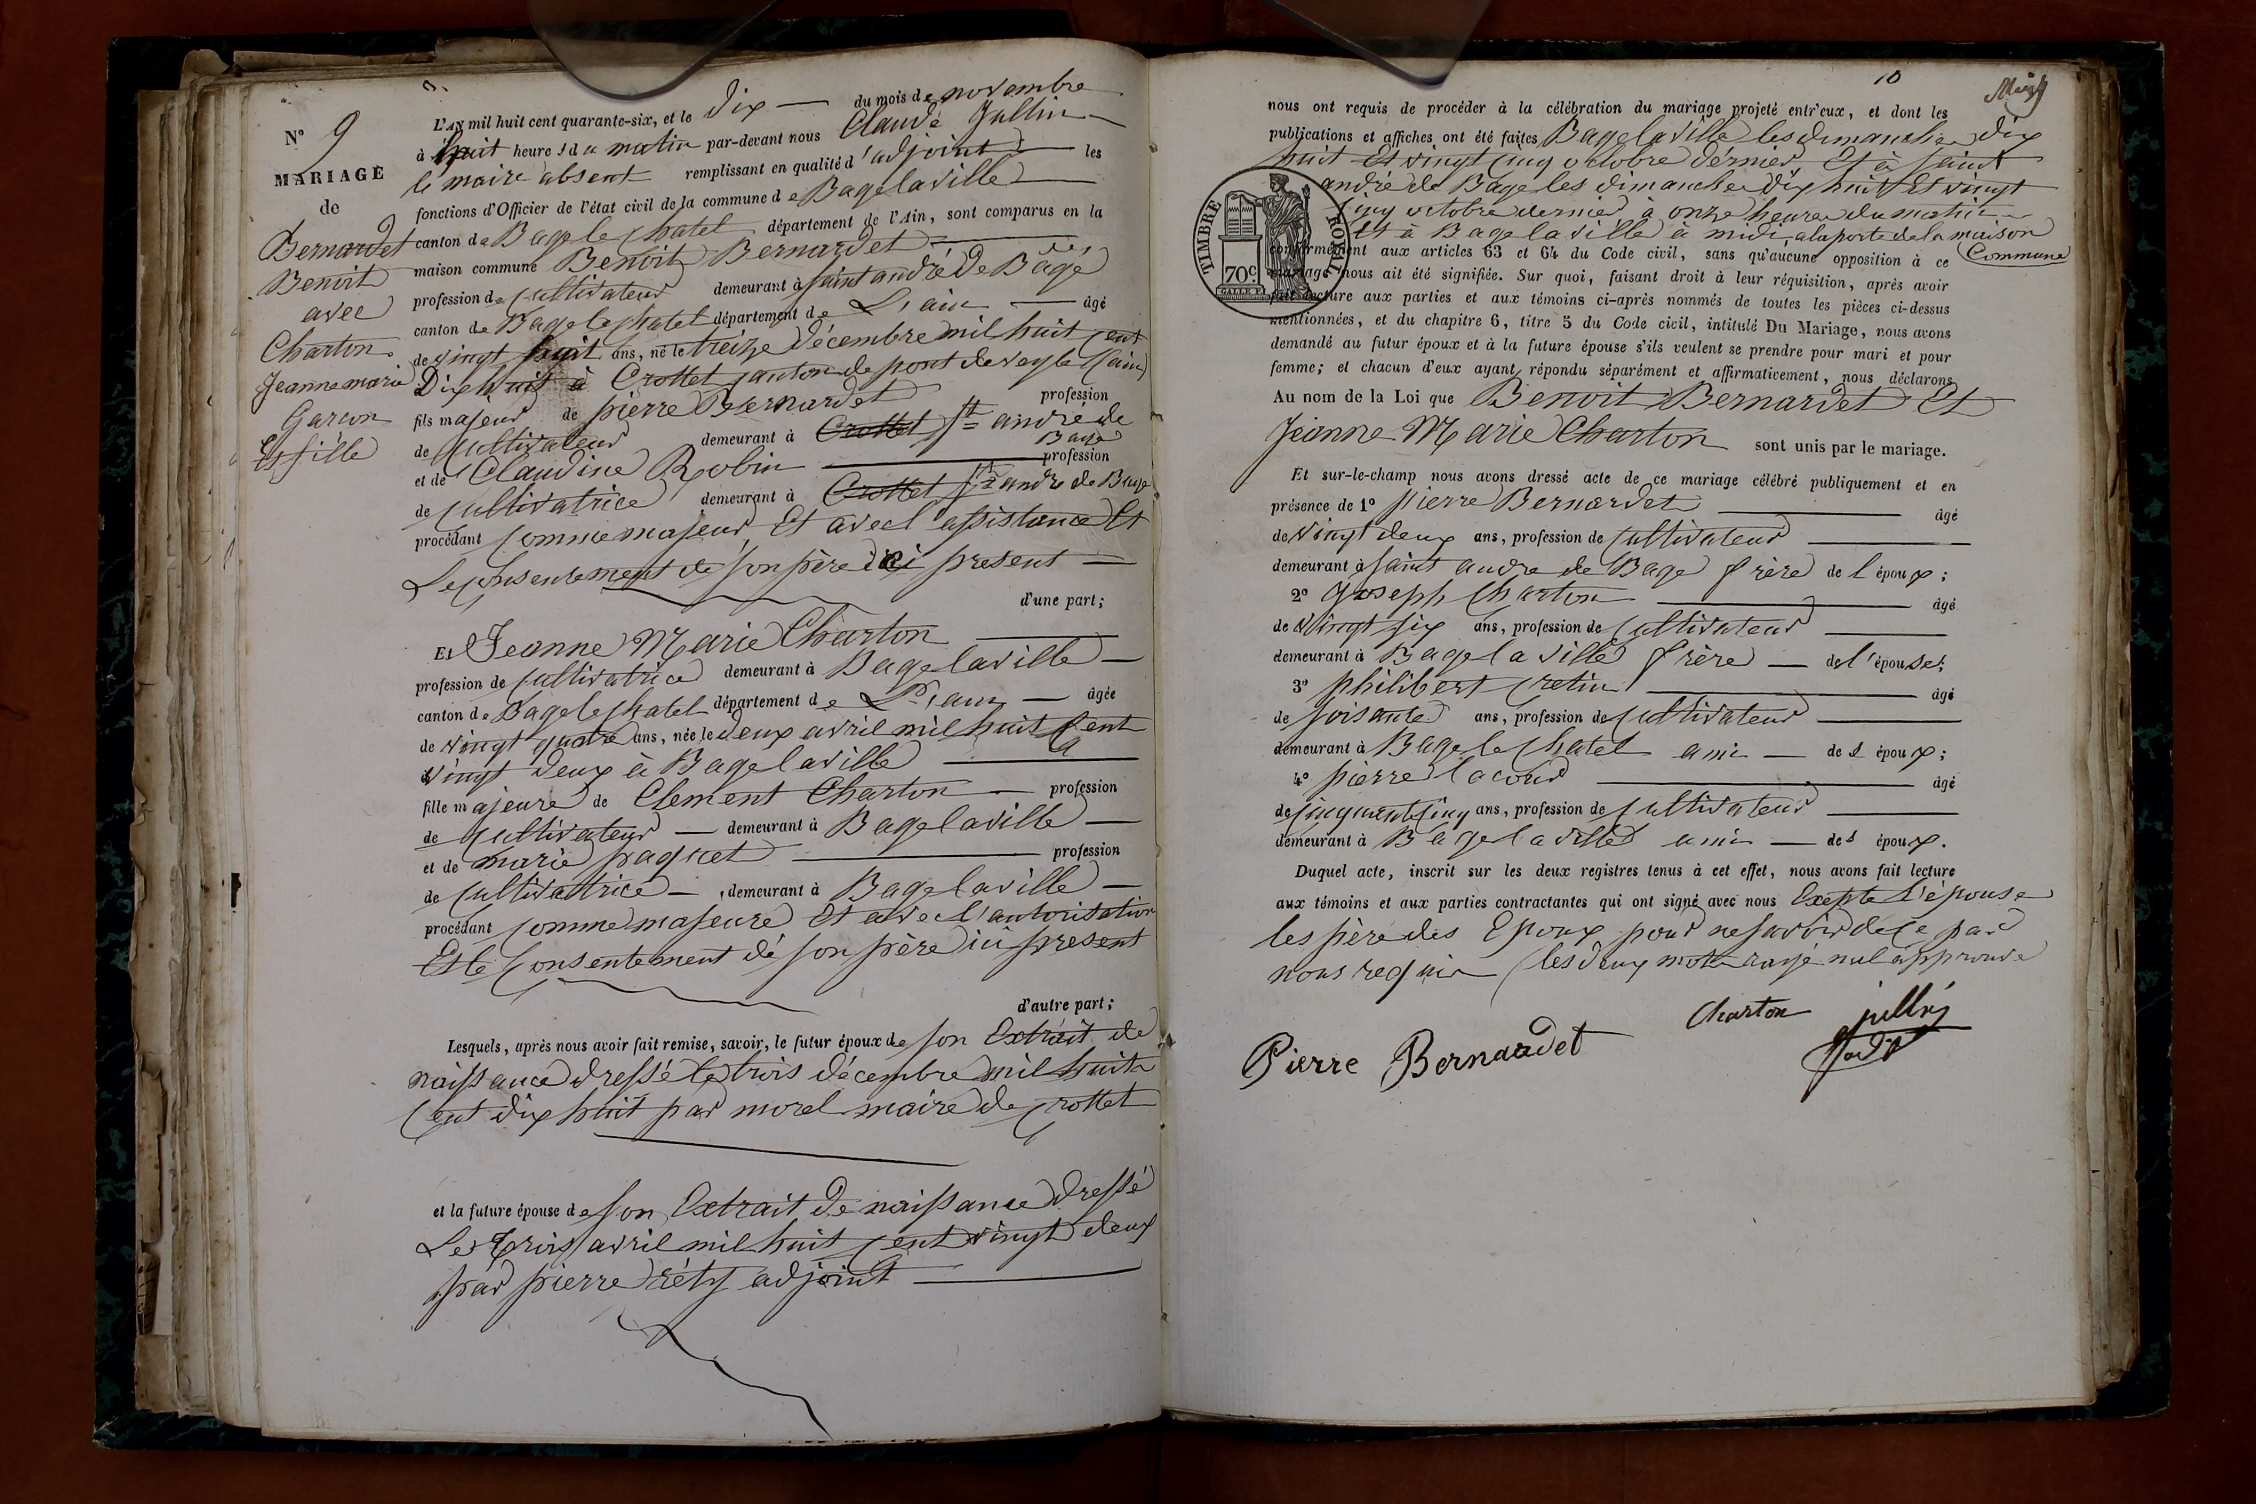 N° 9
MARIAGE
de
Bernardet
Benoit
avec
Charton
Jeanne marie
Garcon
Et fille
L'AN mil huit cent quarante-six, et le dix du mois de novembre
à huit heures du matin par-devant nous Claude Jullin
le maire absent remplissant en qualité d'adjoint les
fonctions d'Officier de l'état civil de la commune de Bagelaville
canton de Bagelechatel département de l'Ain, sont comparus en la
maison commune Benoit Bernardet
profession de cultivateur demeurant à saint andré de Bâgé
canton de Bagelechatel département de L'ain âgé
de vingt huit ans, né le treize décembre mil huit cent
Dix huit à Crottet canton de pont de veyle (ain)
fils majeur de pierre Bernardet profession
de cultivateur demeurant à Crottet st andré de Bagé
et de Claudine Robin profession
de cultivatrice demeurant à Crottet st andré de Bage
procédant comme majeur Et avec l'assistance Et
Le consentement de son père ici present
d'une part;
Et Jeanne Marie Charton
profession de cultivatrice demeurant à Bagelaville
canton de Bagelechatel département de L'ain âgée
de vingt quatre ans, née le deux avril mil huit cent
vingt deux à Bagelaville
fille majeure de Clement Charton profession
de cultivateur demeurant à Bagelaville
et de marie paquet profession
de cultivatrice demeurant à Bagelaville
procédant comme majeure Et avec l'autorisation
Et le consentement de son père ici present
d'autre part;
Lesquels, après nous avoir fait remise, savoir, le futur époux de son Extrait de
naissance dressé le trois décembre mil huit
cent dix huit par morel maire de crottet
et la future épouse de son Extrait de naissance dressé
Le trois avril mil huit cent vingt deux
par pierre réty adjoint
10
nous ont requis de procéder à la célébration du mariage projeté entr'eux, et dont les
publications et affiches ont été faites Bagelaville les dimanches dix
huit Et vingt cinq octobre dérnier Et à saint
andré de Bage les dimanches dix huit Et vingt
cinq octobre dernier à onze heures du matin
Et à Bagelaville à midi, a la porte de la maison
Commune
conformément aux articles 63 et 64 du Code civil, sans qu'aucune opposition à ce
mariage nous ait été signifiée. Sur quoi, faisant droit à leur réquisition, après avoir
fait lecture aux parties et aux témoins ci-après nommés de toutes les pièces ci-dessus
mentionnées, et du chapitre 6, titre 5 du Code civil, intitulé Du Mariage, nous avons
demandé au futur époux et à la future épouse s'ils veulent se prendre pour mari et pour
femme; et chacun d'eux ayant répondu séparément et affirmativement, nous déclarons
Au nom de la Loi que Benoit Bernardet Et
Jeanne Marie Charton sont unis par le mariage.
TIMBRE ROYAL
70c
Et sur-le-champ nous avons dressé acte de ce mariage célébré publiquement et en
présence de 1° pierre Bernardet âgé
de vingt deux ans, profession de cultivateur
demeurant à saint andre de Bage frère de l'époux;
2° Joseph Charton âgé
de vingt six ans, profession de cultivateur
demeurant à Bagelaville frère de l'épouse;
3° philibert cretin âgé
de soisante ans, profession de cultivateur
demeurant à Bagelechatel ami des époux;
4° pierre lacour âgé
de cinquante cinq ans, profession de cultivateur
demeurant à Bagelaville ami des époux.
Duquel acte, inscrit sur les deux registres tenus à cet effet, nous avons fait lecture
aux témoins et aux parties contractantes qui ont signé avec nous Exepté L'épouse
les père des Epoux pour ne savoir de ce par
nous requis (les deux mots rayé nul approuvé
Charton jullin
Pierre Bernardet adjt